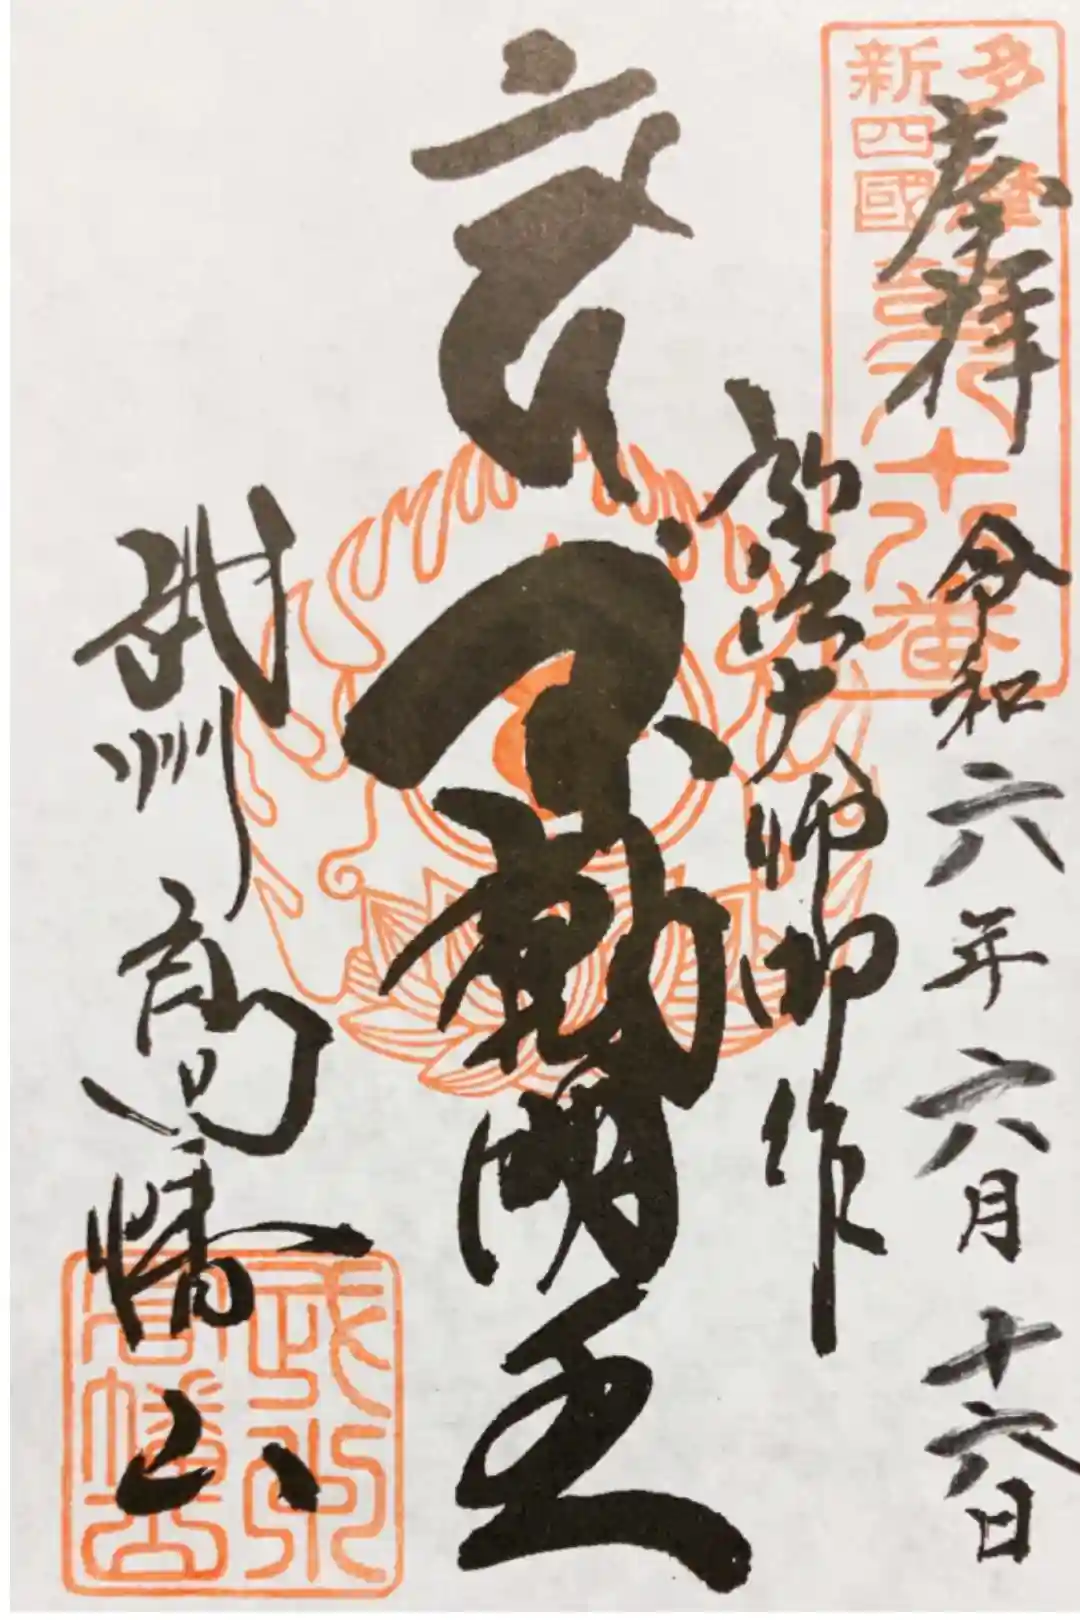 多摩
新四國
第八十八番
奉拝
令和六年六月十六日
弘法大師御作
不動明王
武州高幡山
武州
高幡山